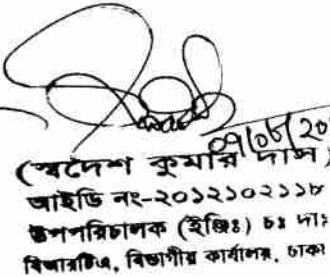 07/06/20
(স্বদেশ কুমার দাস)
আইডি নং-২০১২১০২১১৮
উপপরিচালক (ইঞ্জিঃ) চঃ দাঃ
বিআরটিএ, বিভাগীয় কার্যালয়, ঢাকা